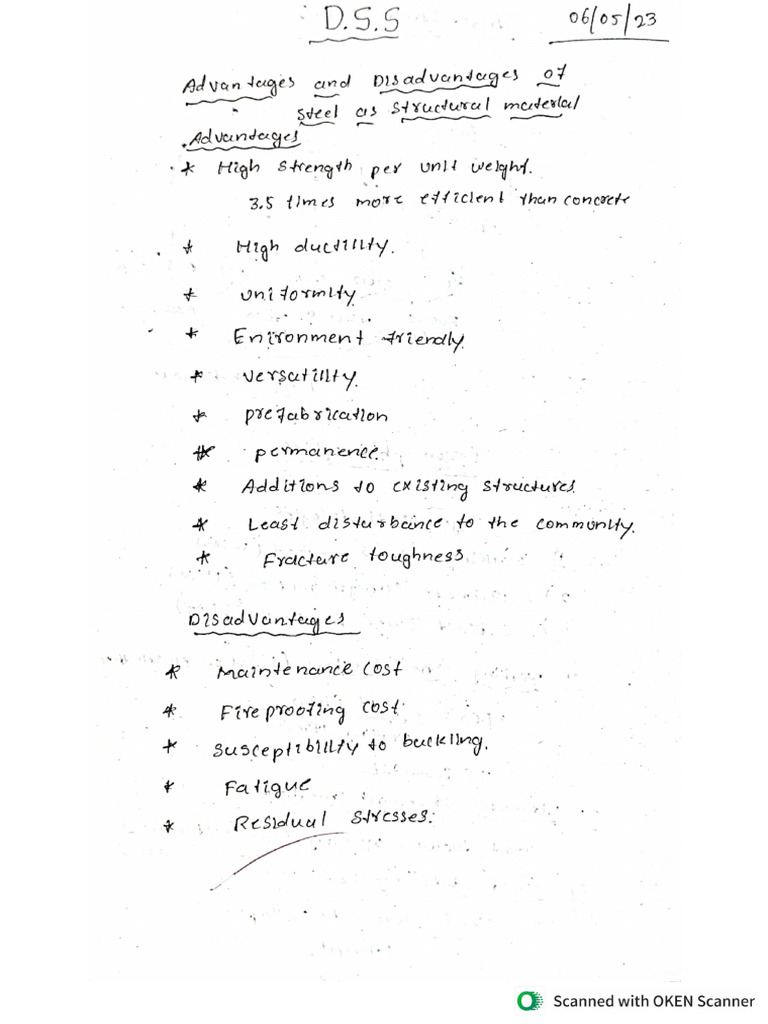 D.S.S
06/05/23
Advantages and Disadvantages of
Steel as structural material
Advantages
* High strength per unit weight.
3.5 times more efficient than concrete
* High ductility.
* Uniformity.
* Enironment friendly.
* Versatility.
* prefabrication
* permanence.
* Additions to existing structures.
* Least disturbance to the community.
* Fracture toughness
Disadvantages
* Maintenance cost
* Fireproofing cost
* Susceptibility to buckling.
* Fatigue
* Residual stresses.
Scanned with OKEN Scanner